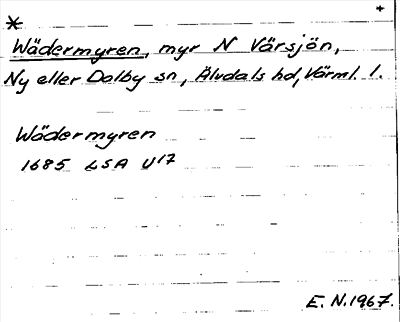 * +
Wädermyren, myr N Värsjön,
Ny eller Dalby sn, Älvdals hd, Värml. l.
Wädermyren
1685 LSA U17
E. N. 1967.